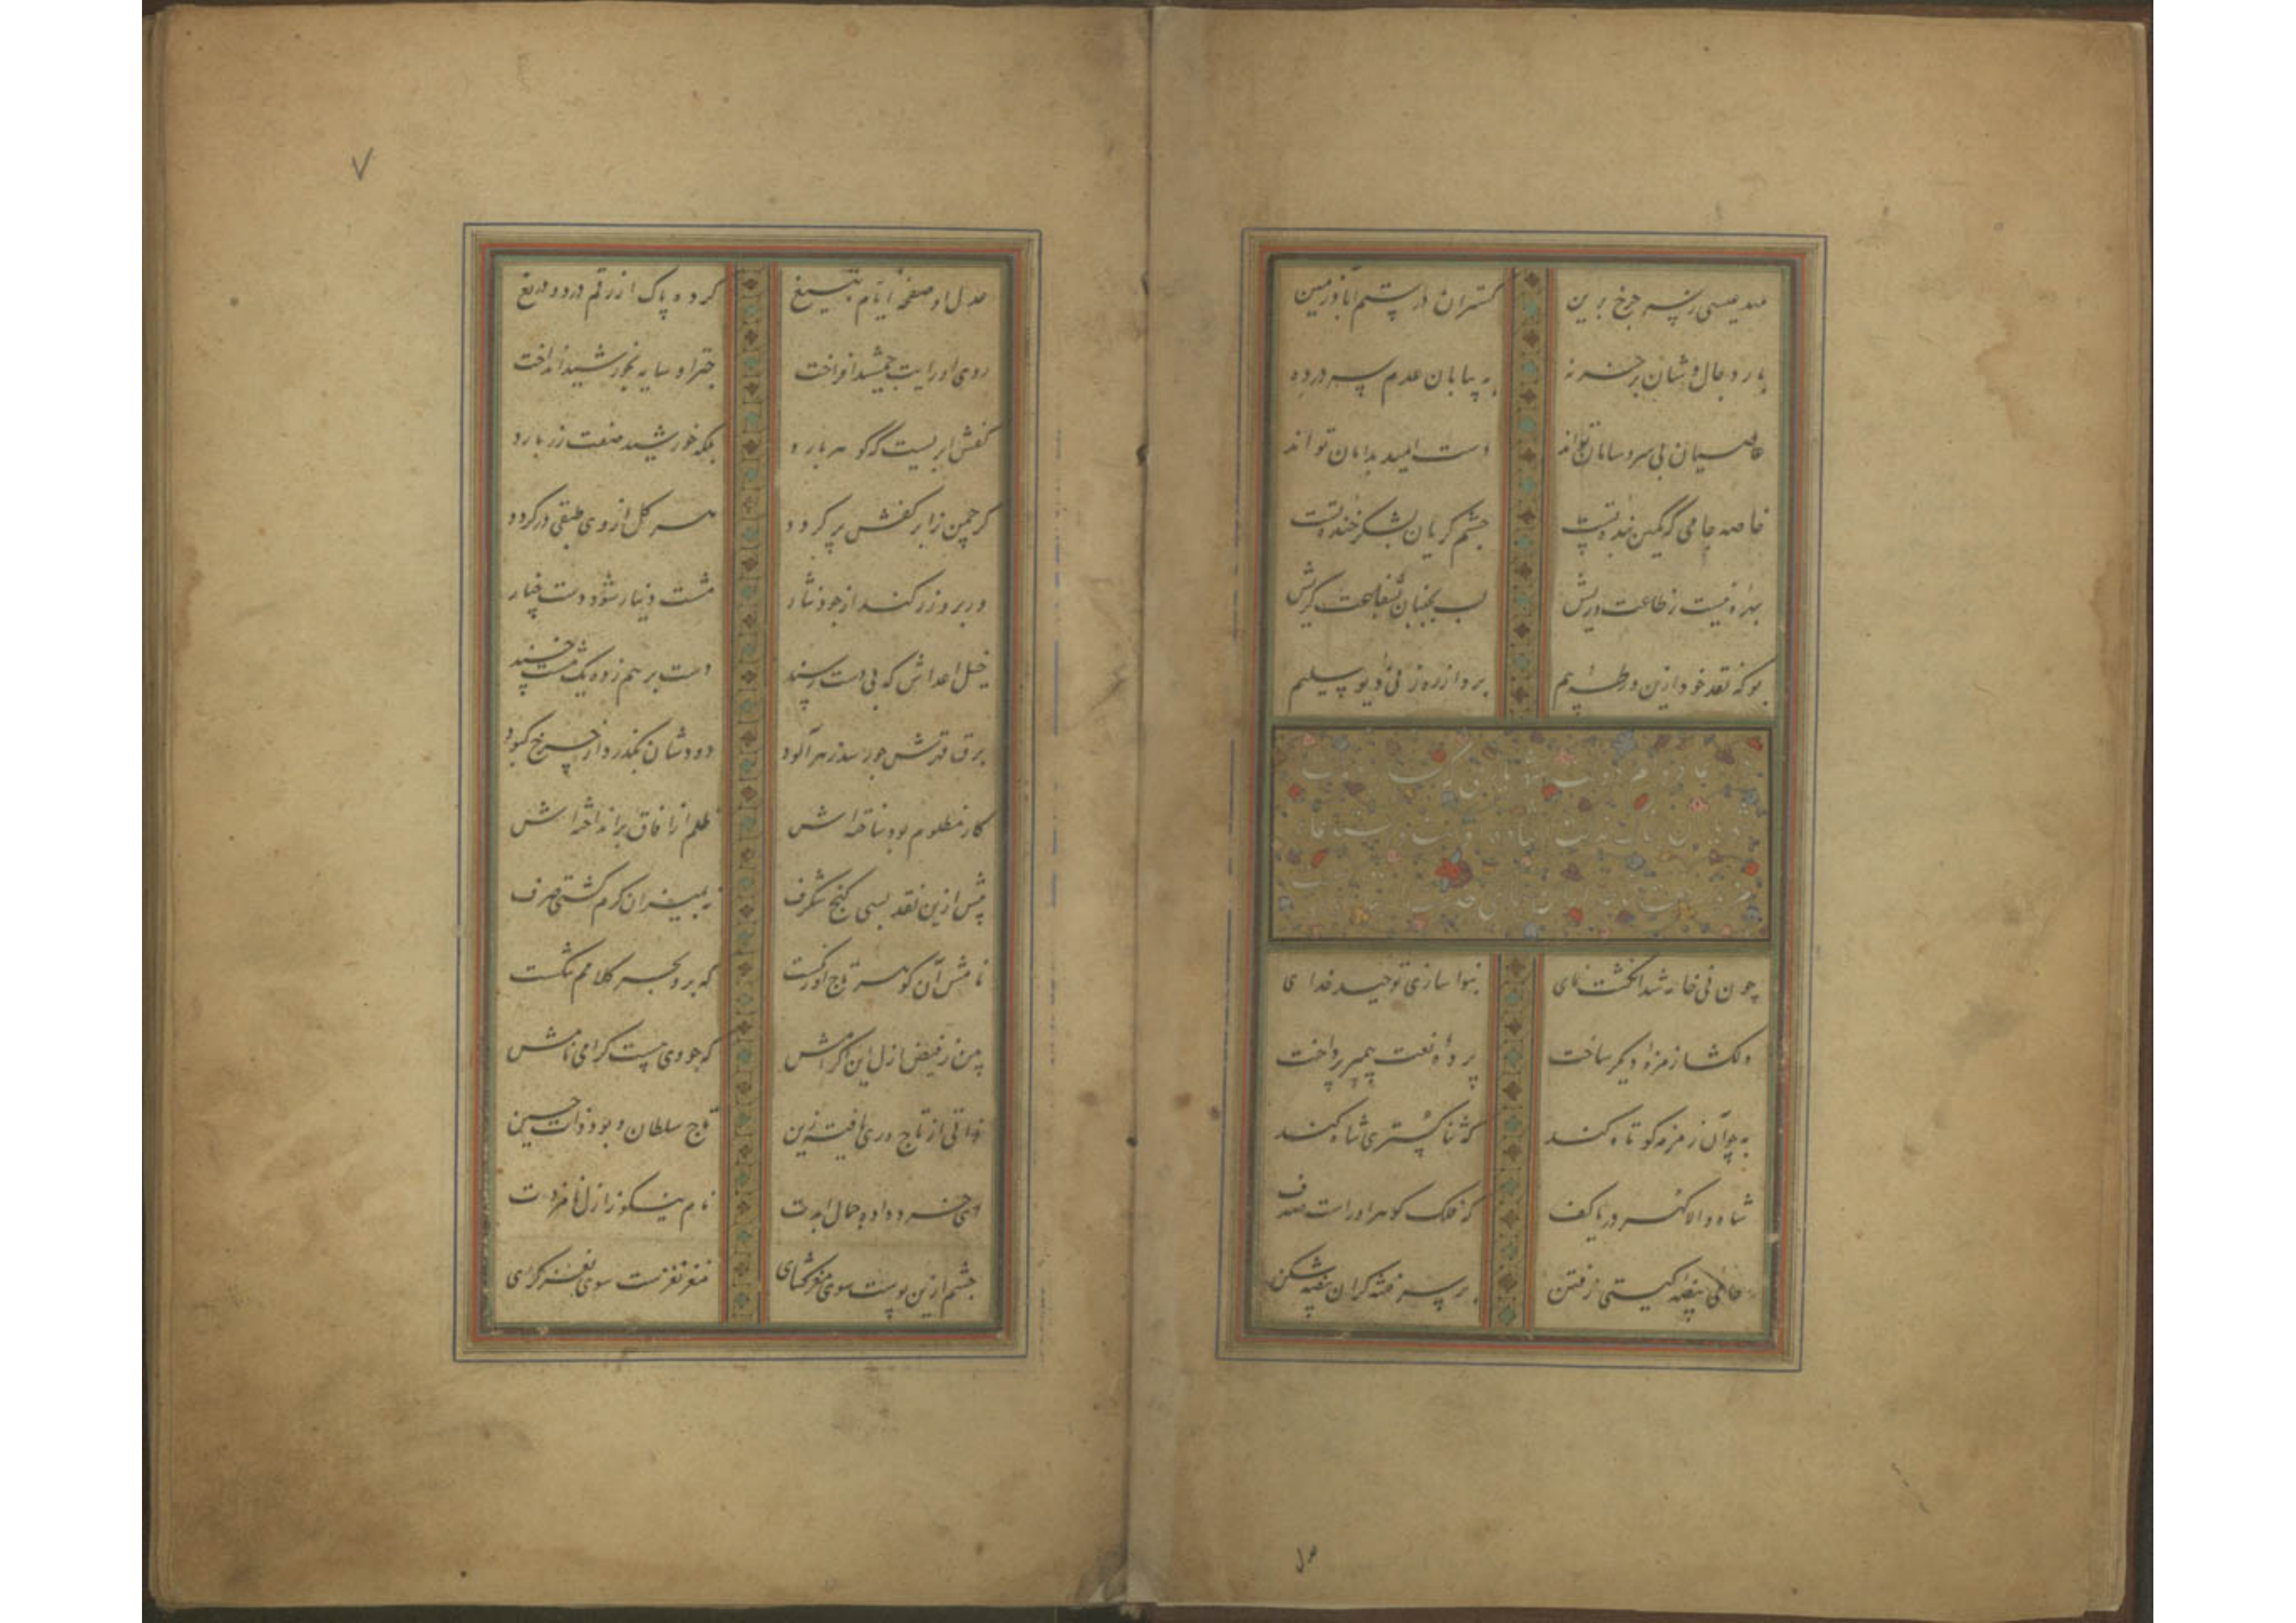 مهد عیسی چرخ برین گستران در ستم آباد زمین
بار دجال وشان بر خر نه به بیابان عدم سر در ده
عاصیان بی سر و سامان تواند دست امید بدامان تواند
خاصه جامی که کمین بنده تست چشم گریان بشکر خنده تست
بهره نیست ز طاعت وریش لب بجنبان بشفاعت گریش
بو که نقد خود ازین ورطه بیم برد از رهزنی دیو سلیم
چون نی خامه شد انگشت نمای بنوا سازی توحید خدای
دلکشا زمزمه دیگر ساخت پرده نعت پیمبر پرداخت
به چو آن زمزمه کوتاه کند که ثنا گستری شاه کند
شاه والا گهر دریا کف که فلک گوهر او راست صدف
بیضه گیتی ز فتن بر سر فتنه گران بیضه شکن
عدل
۷
عدل او صفحه ایام بتیغ کرده پاک از رقم درد و دریغ
روی او رایت جمشید افراخت چتر او سایه بخورشید انداخت
کفش ابریست که گوهر بارد بلکه خورشید صفت زر بارد
گر چمن ز ابر کفش بر گردد سر گل از وی طبقی زر گردد
ور برو زر کند از جود نثار مشت دینار شود دست چنار
خیل اعداش که بی دست رسند دست بر هم زده یک مشت خسند
برق قهرش چو رسد زهر آلود دودشان بگذرد از چرخ کبود
کار مظلوم بود ساخته اش ظلم از آفاق برانداخته اش
پیش ازین نقد بسی گنج شگرف میزان کرم گشتی صرف
نامش آن گوهر تاج آور گشت که برو بحر کلامم
ز فیض ازل این اکرامش که جو وی هست گرامی نامش
ذاتی از تاج وری یافته زین تاج سلطان و بود ذات حسین
ای خرد داده جمال ابدت نام نیکو ز ازل نامزدت
چشم ازین پوست سوی مغز گشای مغز نغزست سوی نغز گرای